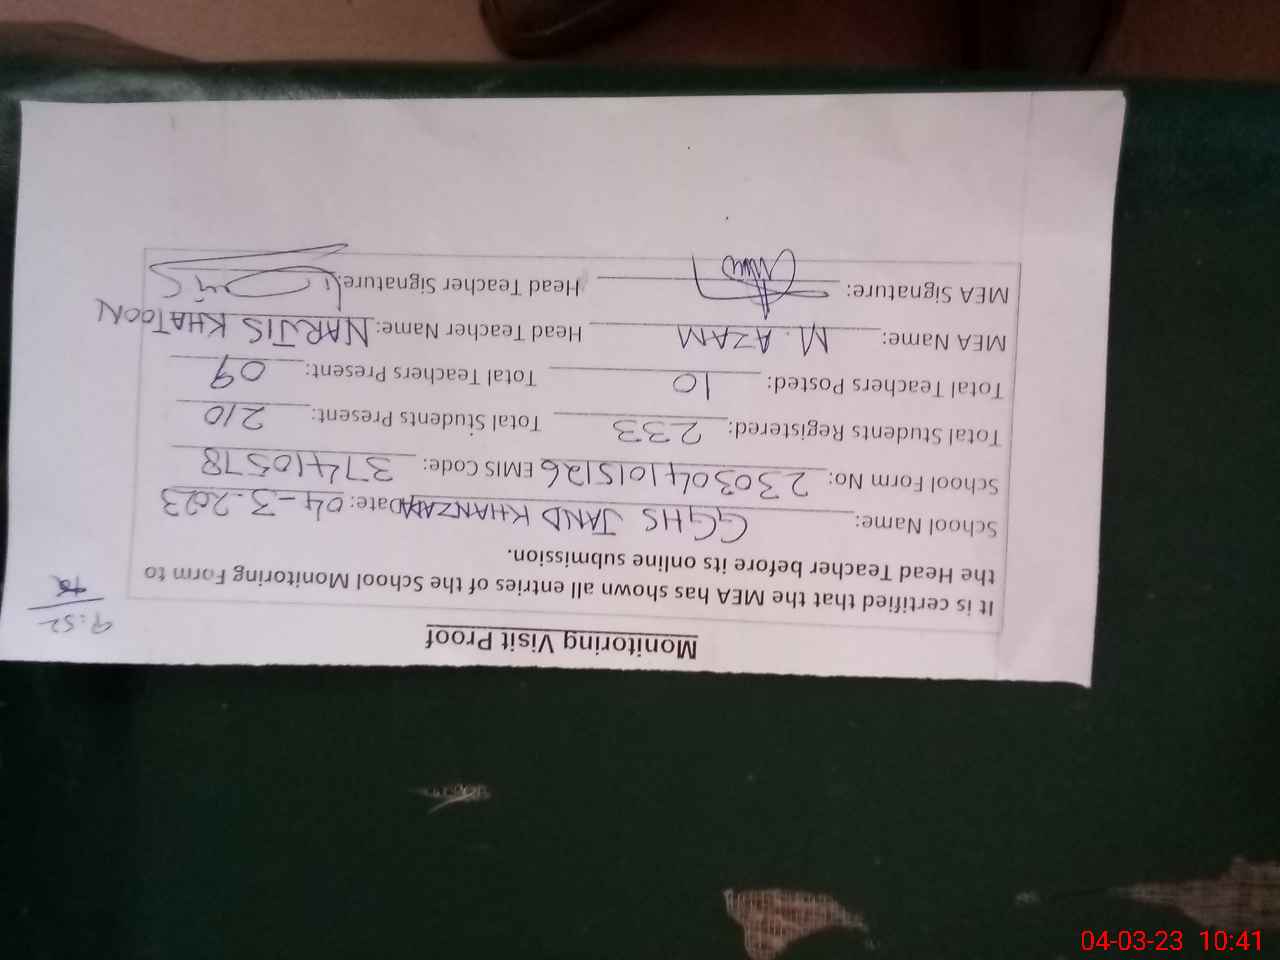 Monitoring Visit Proof
9:52
It is certified that the MEA has shown all entries of the School Monitoring Form to
the Head Teacher before its online submission.
School Name: GGHS JAND KHANZADA Date: 04-3-2023
School Form No: 2303041015126 EMIS Code: 37410578
Total Students Registered: 233 Total Students Present: 210
Total Teachers Posted: 10 Total Teachers Present: 09
MEA Name: M. AZAM Head Teacher Name: NARJIS KHATOON
MEA Signature: Head Teacher Signature:
04-03-23 10:41